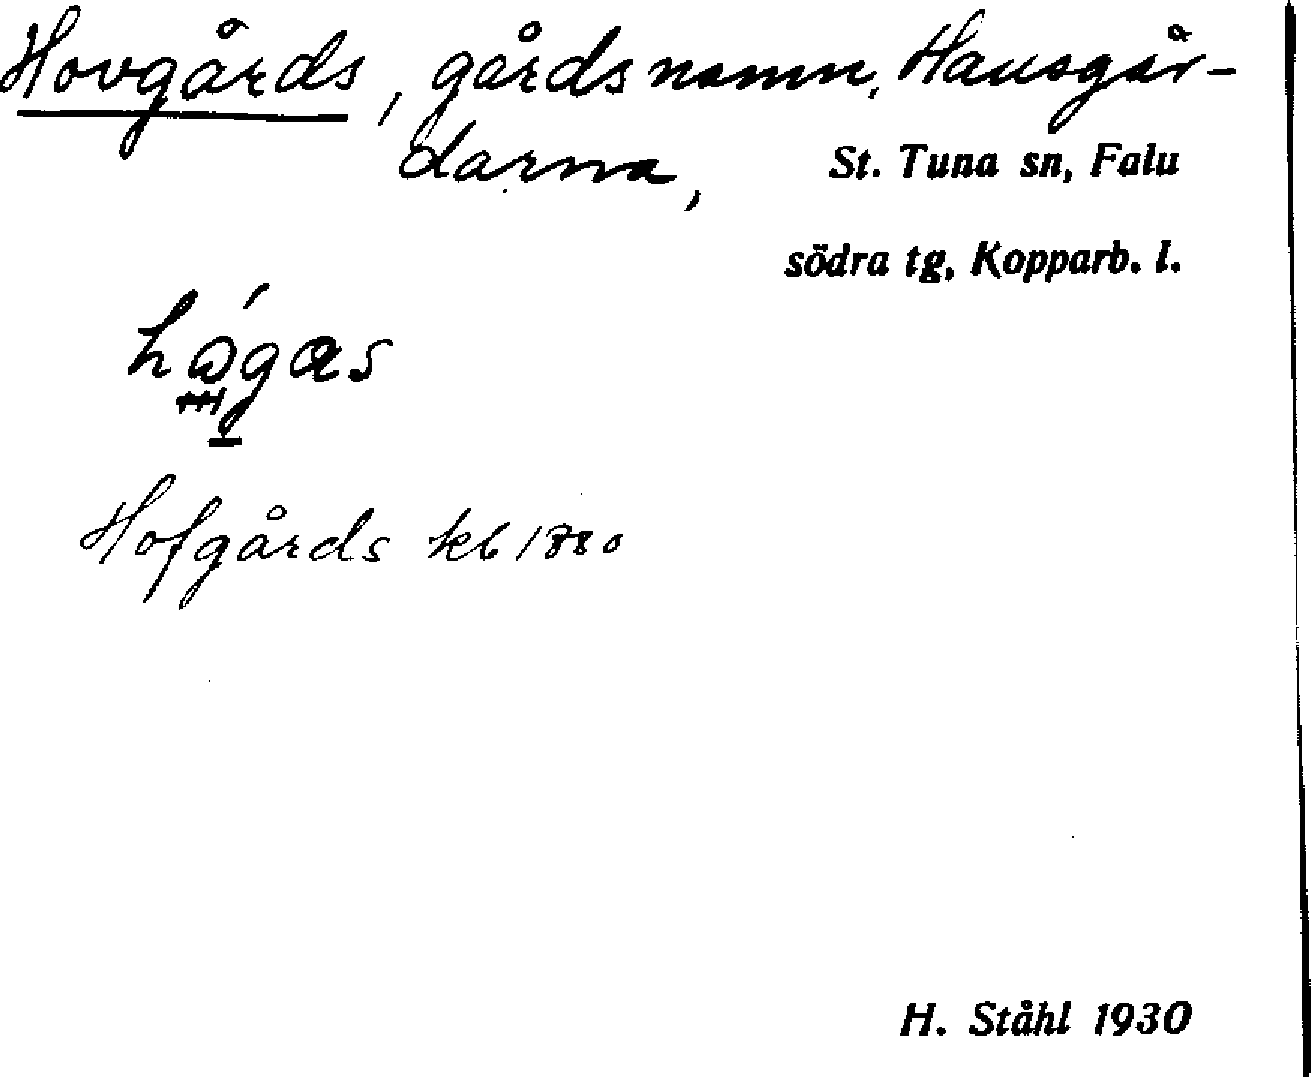 Hovgårds, gårdsnamn, Hausgår-
darna,
St. Tuna sn, Falu
södra tg, Kopparb. l.
Hofgårds kb 1880
H. Ståhl 1930